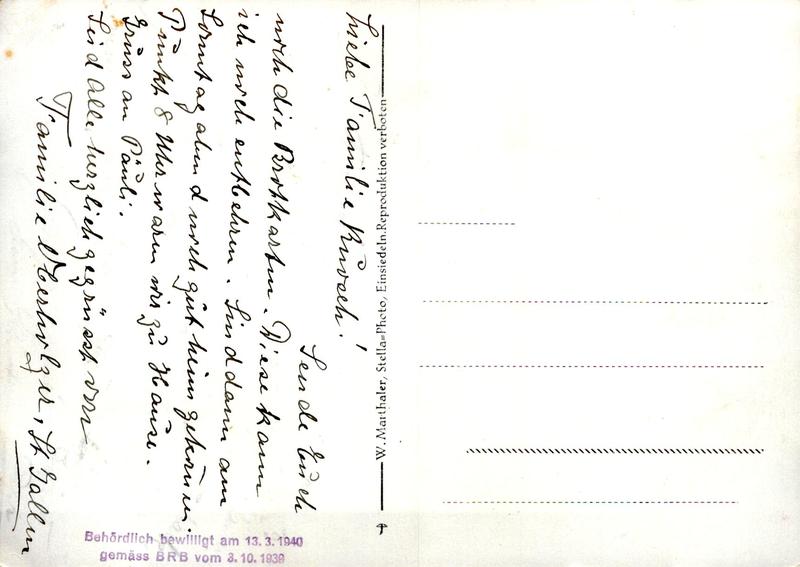 Liebe Familie Kuosch!
Sende Euch
noch die Brotkarten. Diese kann
ich noch entbehren. Sind dann am
Sonntag abend noch gut heim gekomm.
Punkt 8 Uhr waren wir zu Hause.
Gruss an Pauli.
Seid Alle herzlich gegrüsst von
Familie Oberholzer, St. Gallen
W. Marthaler, Stella=Photo, Einsiedeln. Reproduktion verboten
Behördlich bewilligt am 13. 3. 1940
gemäss BRB vom 3. 10. 1939